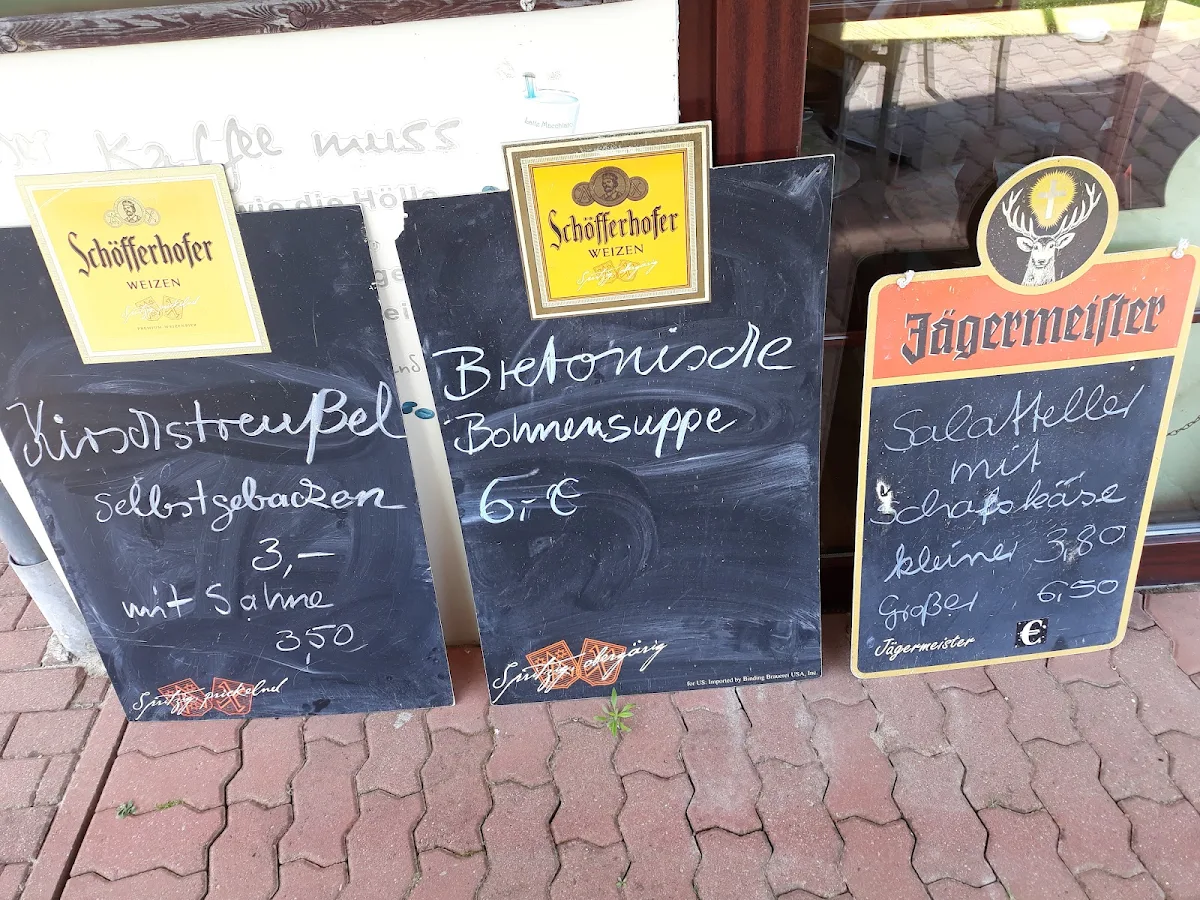 Kaffee muss
wie die Hölle
Schöfferhofer
WEIZEN
Kirschstreußel
selbstgebacken
3,—
mit Sahne
3,50
Spritzig prickelnd
Schöfferhofer
WEIZEN
Spritzig obergärig
Bretonische
Bohnensuppe
6,- €
Spritzig obergärig
for US: Imported by Binding Brauerei USA, Inc.
Jägermeister
Salatteller
mit
Schafskäse
kleiner 3,80
Großer 6,50
€
Jägermeister